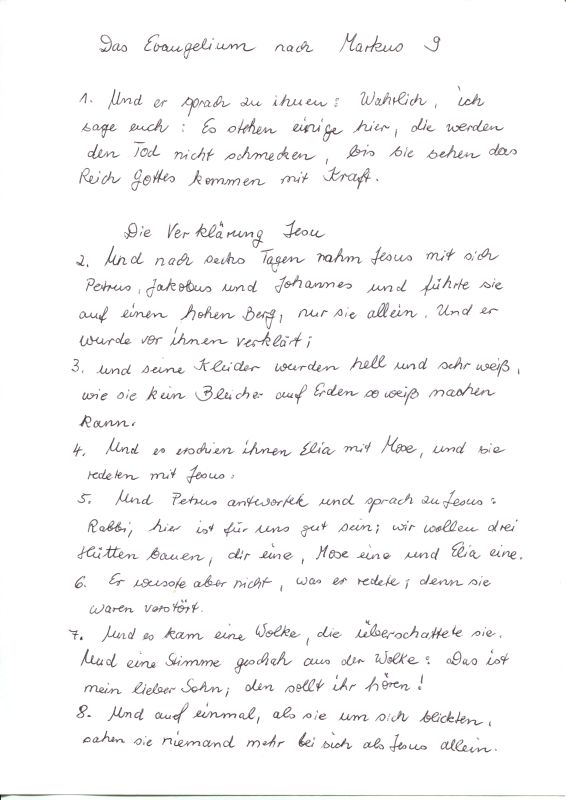 Das Evangelium nach Markus 9
1. Und er sprach zu ihnen: Wahrlich, ich
sage euch: Es stehen einige hier, die werden
den Tod nicht schmecken, bis sie sehen das
Reich Gottes kommen mit Kraft.
Die Verklärung Jesu
2. Und nach sechs Tagen nahm Jesus mit sich
Petrus, Jakobus und Johannes und führte sie
auf einen hohen Berg, nur sie allein. Und er
wurde vor ihnen verklärt;
3. und seine Kleider wurden hell und sehr weiß,
wie sie kein Bleicher auf Erden so weiß machen
kann.
4. Und es erschien ihnen Elia mit Mose, und sie
redeten mit Jesus.
5. Und Petrus antwortete und sprach zu Jesus:
Rabbi, hier ist für uns gut sein; wir wollen drei
Hütten bauen, dir eine, Mose eine und Elia eine.
6. Er wusste aber nicht, was er redete; denn sie
waren verstört.
7. Und es kam eine Wolke, die überschattete sie.
Und eine Stimme geschah aus der Wolke: Das ist
mein lieber Sohn; den sollt ihr hören!
8. Und auf einmal, als sie um sich blickten,
sahen sie niemand mehr bei sich als Jesus allein.